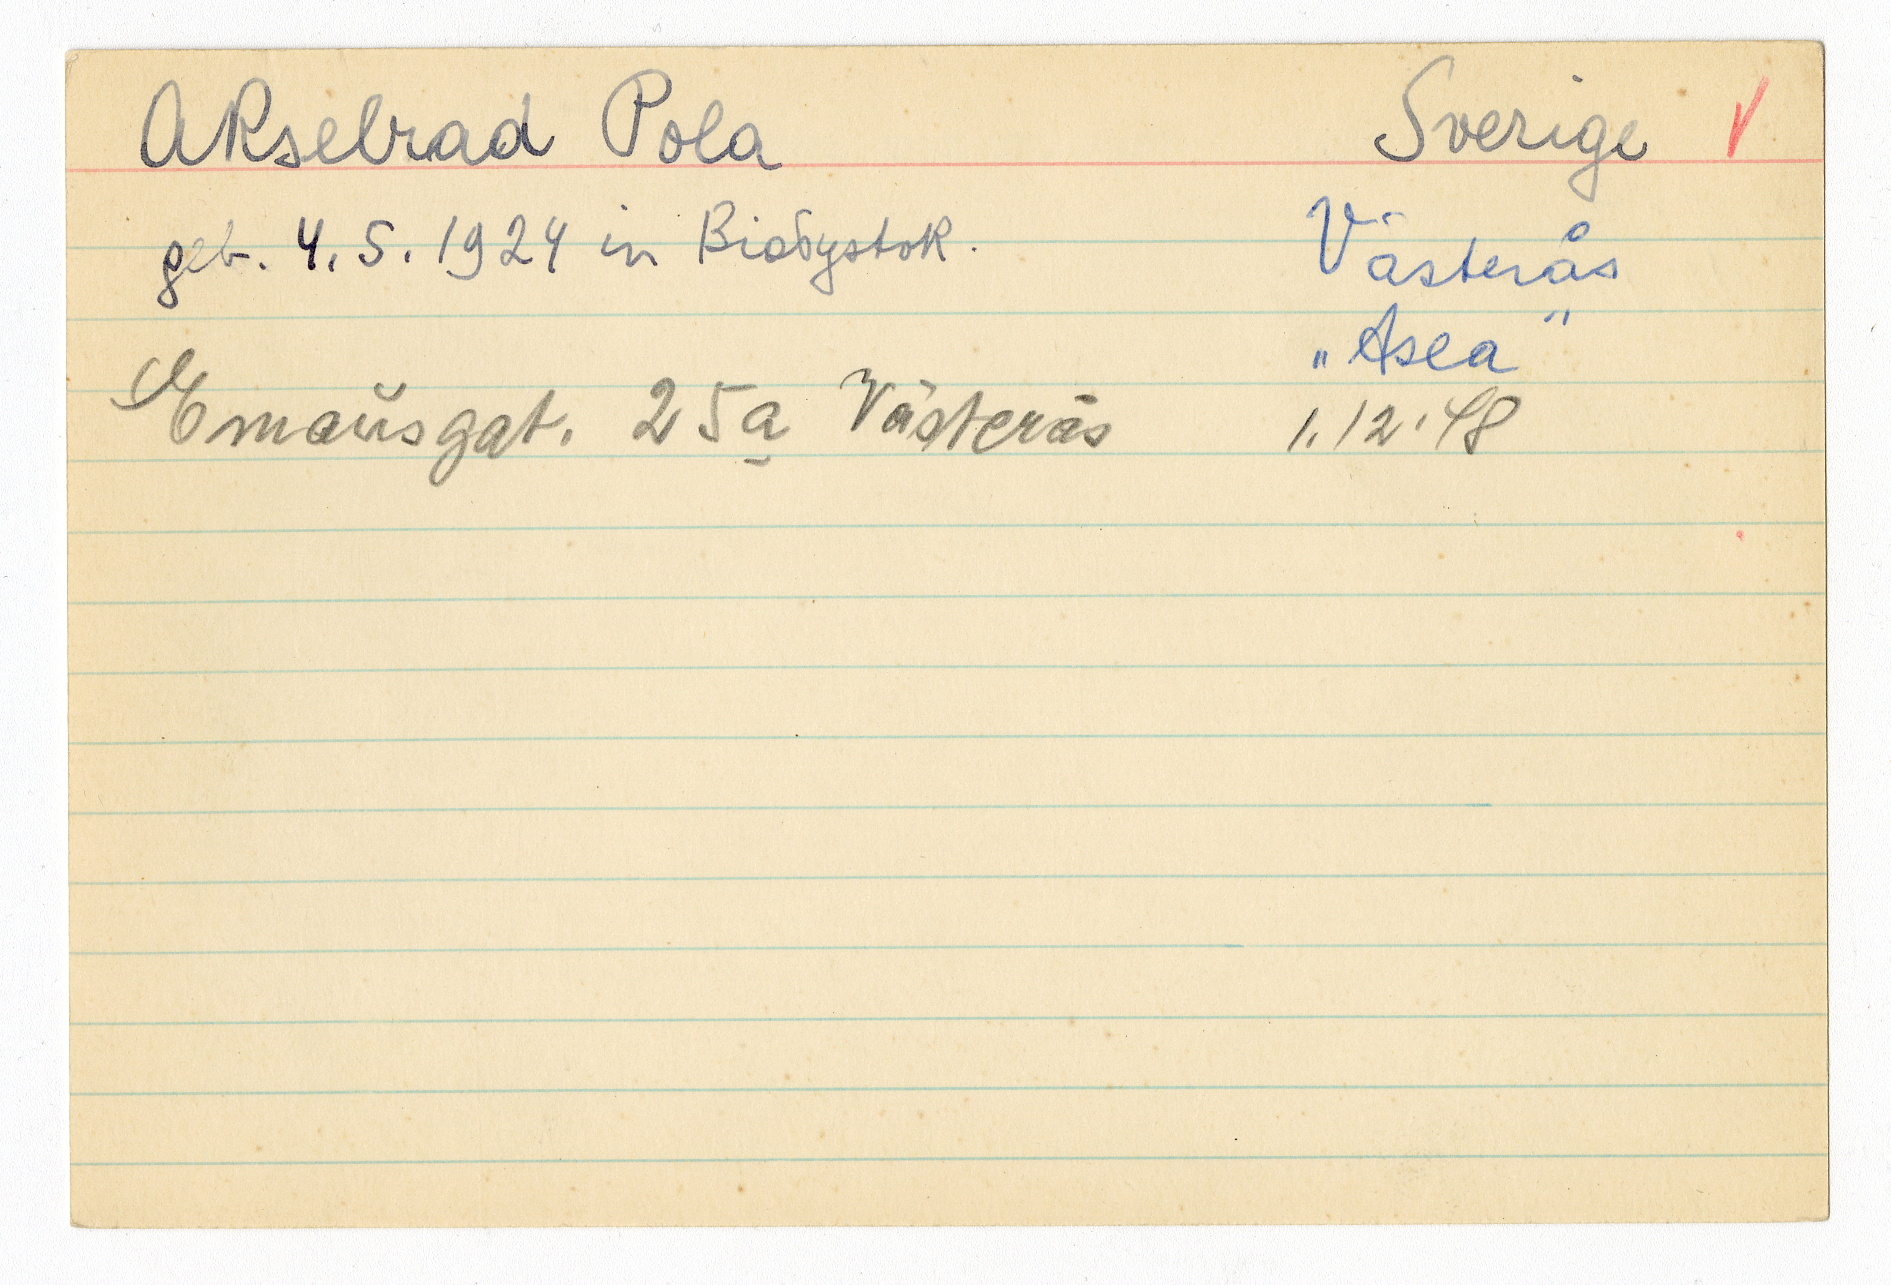 Akselrad Pola Sverige
geb. 4.5.1924 in Białystok.
Västerås
„Asea"
Emaŭsgat. 25a Västerås 1.12.48